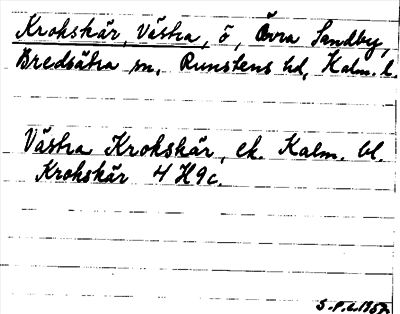 Krokskär, Västra, ö, Övra Sandby,
Bredsätra sn, Runstens hd, Kalm. l.
Västra Krokskär, ek. Kalm. bl.
Krokskär 4 H 9 c.
S.P.L. 1957.